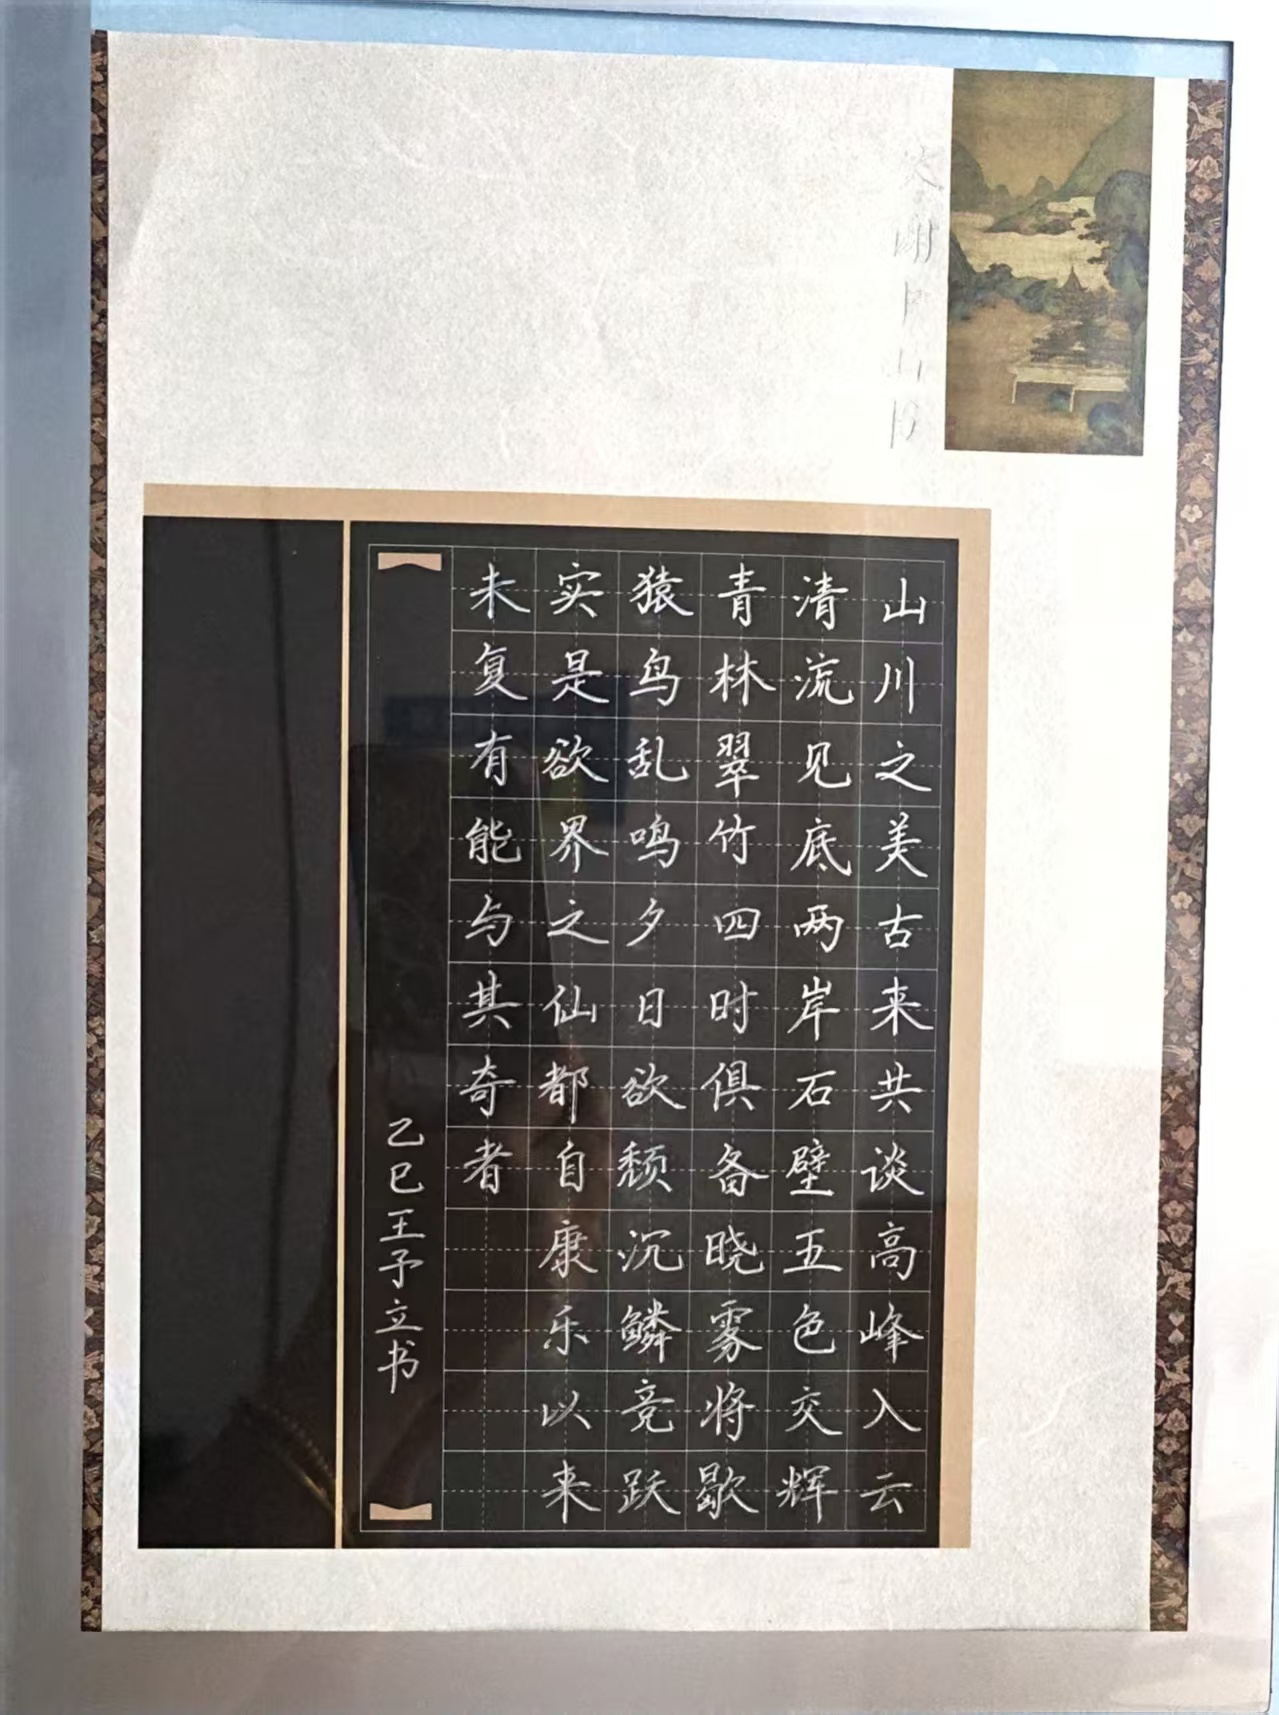 山川之美古来共谈高峰入云
清流见底两岸石壁五色交辉
青林翠竹四时俱备晓雾将歇
猿鸟乱鸣夕日欲颓沉鳞竞跃
实是欲界之仙都自康乐以来
未复有能与其奇者
乙巳王予立书